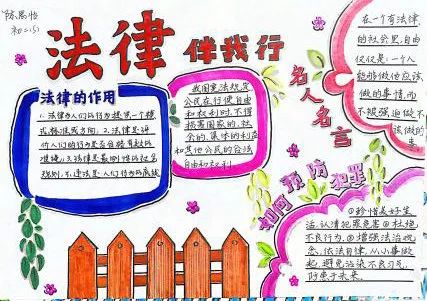 陈思怡
初二(5)
法律 伴我行
法律的作用
1.法律为人们的行为提供一个模
式,标准或方向。2.法律是评
价人们的行为是否合法有效的
准绳。3.法律是最刚性的社会
规则,不违法是人们行为的底线
我国宪法规定
公民在行使自由
和权利时,不得
损害国家的,社
会的,集体的利益
和其他公民的合法
自由和权利
名人名言
在一个有法律
的社会里,自由
仅仅是:一个人
能够做他应该
做的事情,而
不被强迫做不
该做的事
如何预防犯罪
①珍惜美好生
活,认清犯罪危害②杜绝
不良行为,③增强法治观
念,依法自律,从小事做
起,避免沾染不良习气,
防患于未然。